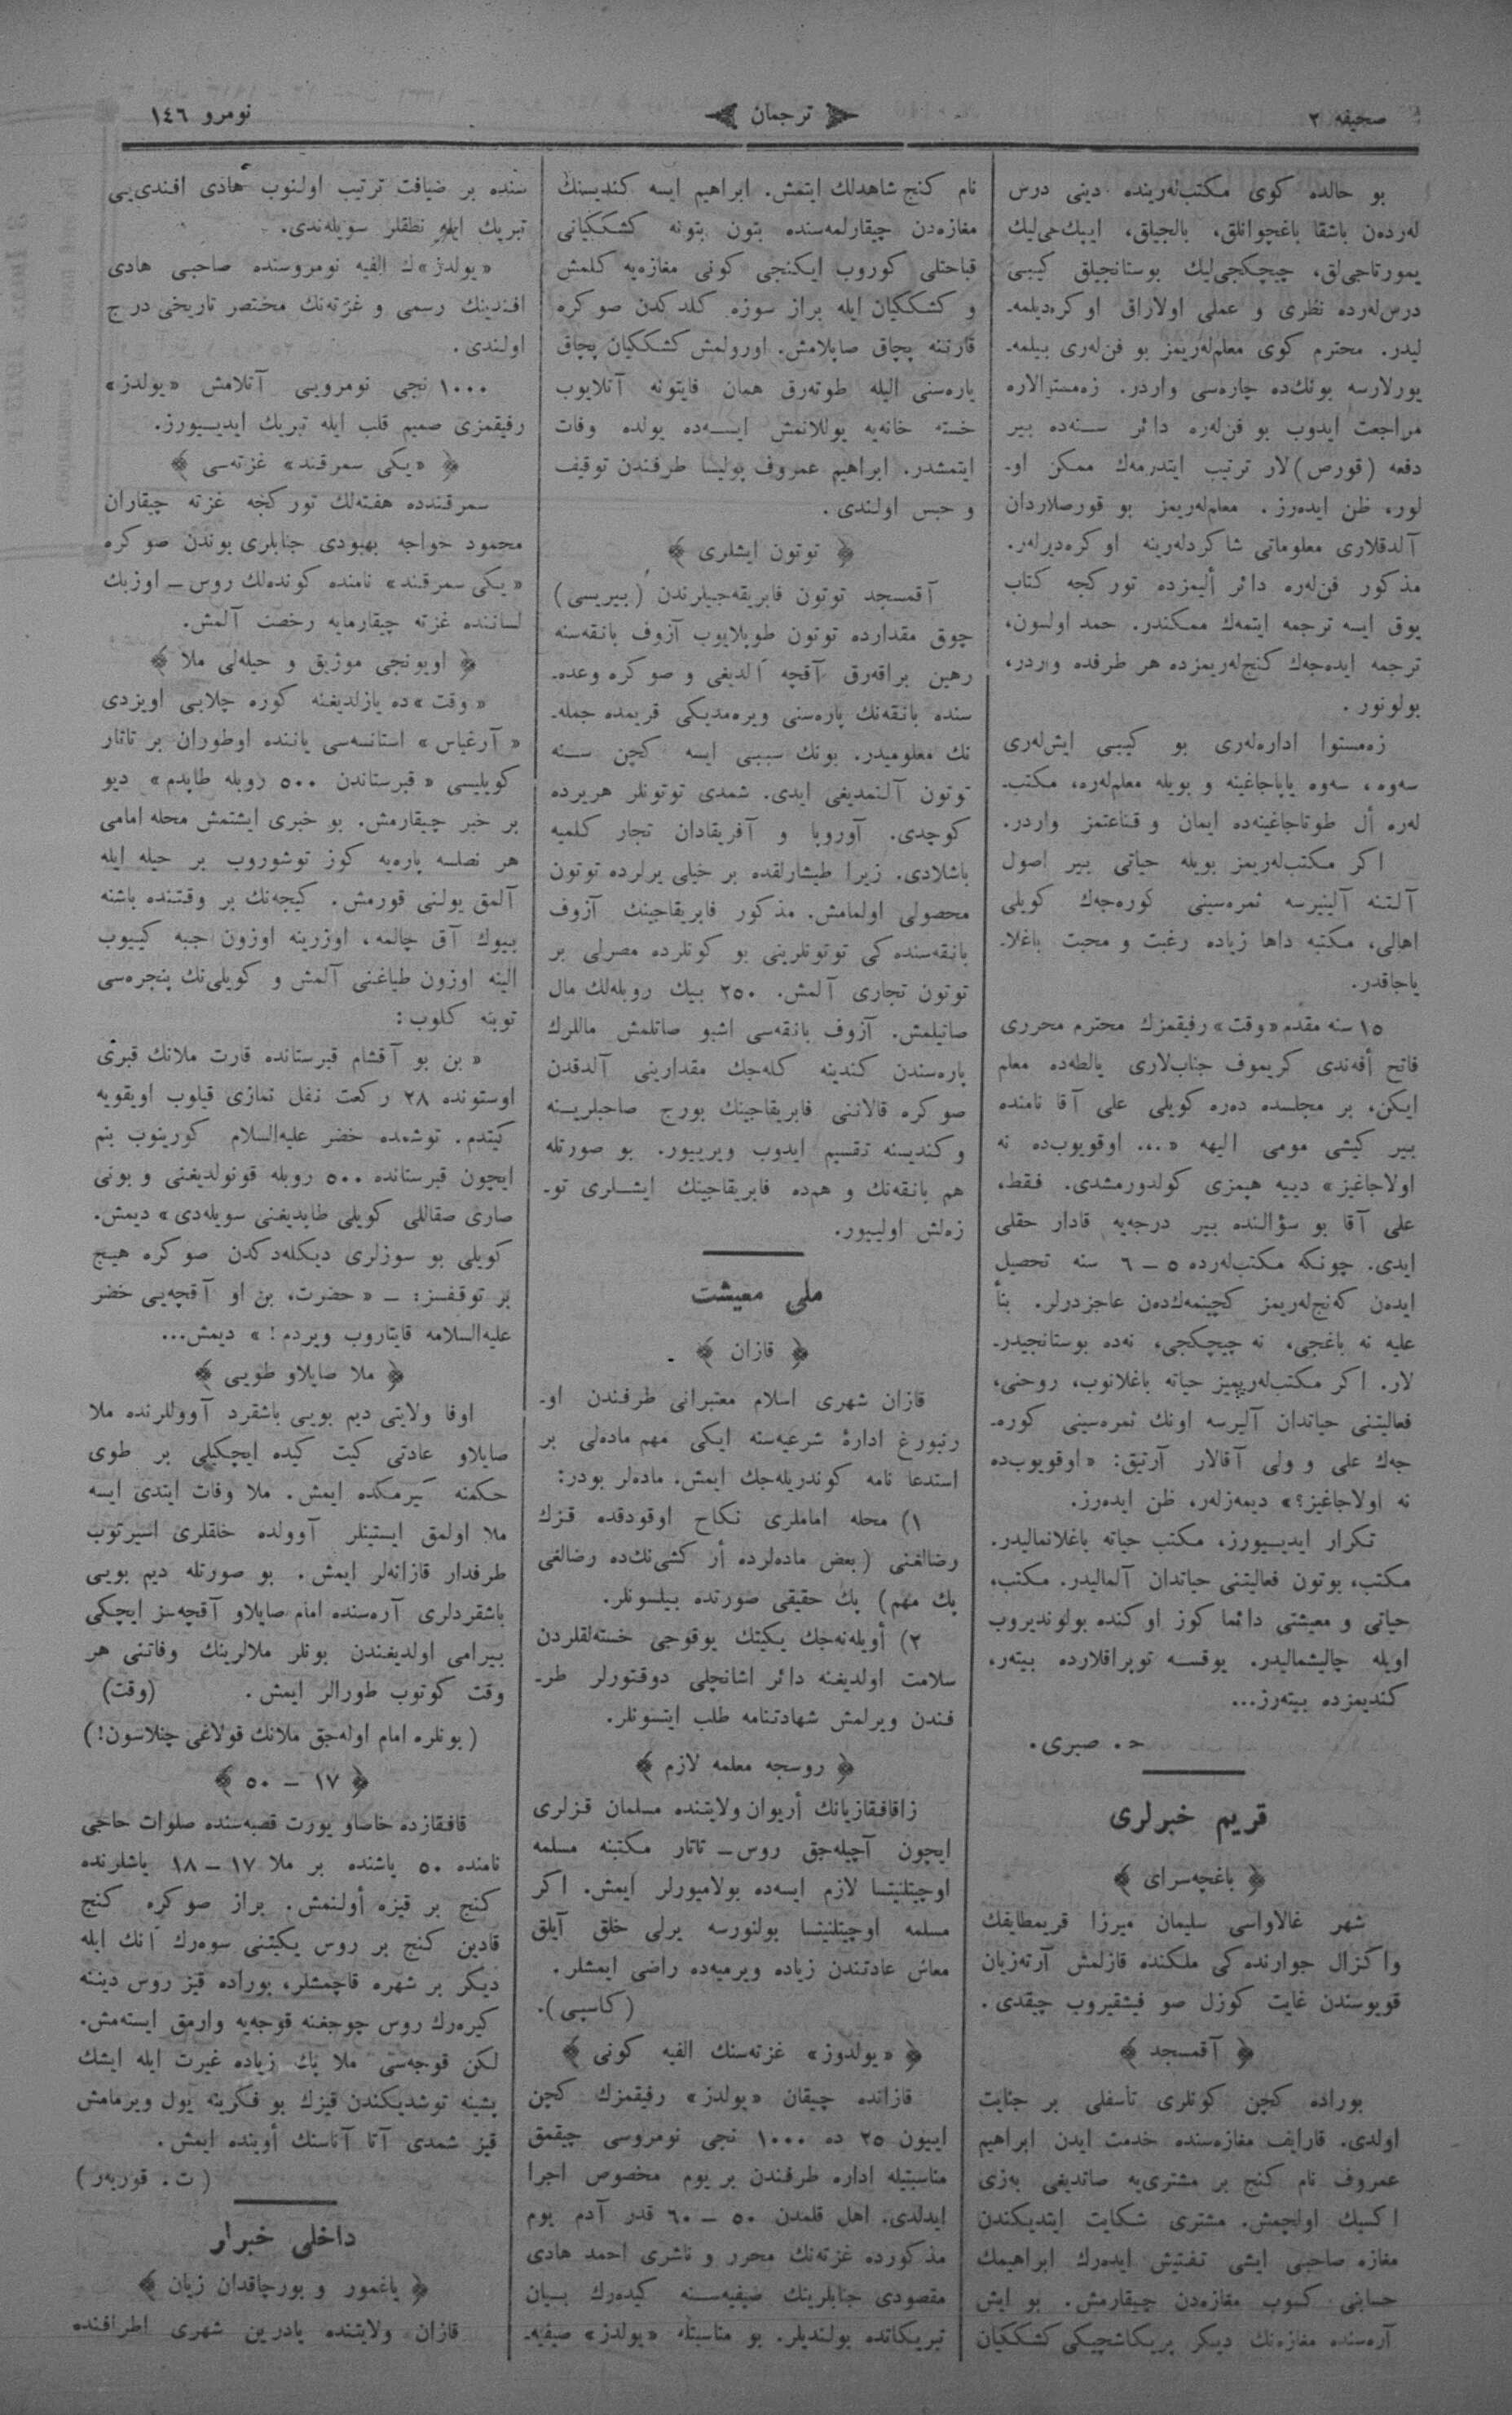 صحيفه ٢
ترجمان
نومرو ١٤٦
بو حالده كوى مكتب‌لەرينده دينى درس
لەردەن باشقا باغچوانلق، بالجيلق، ايپك‌جى‌ليك
يمورتاجى‌لق، چيچكجى‌ليك بوستانجيلق كيبى
درس‌لەرده نظرى و عملى اولاراق اوكرەديلمه‌ـ
ليدر. محترم كوى معلم‌لەريمز بو فن‌لەرى بيلمه‌ـ
يورلارسه بونك‌ده چاره‌سى واردر. زەمستوالاره
مراجعت ايدوب بو فن‌لەره دائر سنه‌ده بير
دفعه (قورص)لار ترتيب ايتديرمەك ممكن او‌ـ
لور، ظن ايدەرز. معلم‌لەريمز بو قورصلاردان
آلدقلارى معلوماتى شاكردلەرينه اوكرەديرلەر.
مذكور فن‌لەره دائر أليمزده توركجه كتاب
يوق ايسه ترجمه ايتمەك ممكندر. حمد اولسون،
ترجمه ايدەجەك كنج‌لەريمزده هر طرفده واردر،
بولونور.
زەمستوا ادارەلەرى بو كيبى ايش‌لەرى
سەوه، سەوه ياپاجاغينه و بويله معلم‌لەره، مكتب‌ـ
لەره أل طوتاجاغينه‌ده ايمان و قناعتمز واردر.
اكر مكتب‌لەريمز بويله حياتى بير اصول
آلتنه آلينيرسه ثمره‌سينى كوره‌جەك كويلى
اهالى، مكتبه داها زياده رغبت و محبت باغلا‌ـ
ياجاقدر.
١٥ سنه مقدم «وقت» رفيقمزك محترم محررى
فاتح أفەندى كريموف جناب‌لارى يالطه‌ده معلم
ايكن، بر مجلسده دەره كويلى على آقا نامنده
بير كيشى مومى اليهه «... اوقويوب‌ده نه
اولاجاغيز» دييه هپمزى كولدورمشدى. فقط،
على آقا بو سؤالنده بير درجه‌يه قادار حقلى
ايدى. چونكه مكتب‌لەرده ٥ – ٦ سنه تحصيل
ايدەن كەنج‌لەريمز كچينمەك‌دەن عاجزدرلر. بنأ
عليه نه باغجى، نه چيچكجى، نه‌ده بوستانجيدر‌ـ
لار. اكر مكتب‌لەريميز حياته باغلانوب، روحنى،
فعاليتنى حياتدان آليرسه اونك ثمره‌سينى كوره‌ـ
جەك على و ولى آقالار آرتيق: «اوقويوب‌ده
نه اولاجاغيز؟» ديمەزلەر، ظن ايدەرز.
تكرار ايدييورز، مكتب حياته باغلانماليدر.
مكتب، بوتون فعاليتنى حياتدان آلماليدر. مكتب،
حياتى و معيشتى دائما كوز اوكنده بولونديروب
اويله چاليشماليدر. يوقسه توپراقلارده بيتەر،
كنديمزده بيتەرز...
ح. صبرى.
قريم خبرلرى
﴿ باغچه‌سراى ﴾
شهر غالاواسى سليمان ميرزا قريمطايفك
واكزال جوارنده كى ملكنده قازلمش آرتەزيان
قويوسندن غايت كوزل صو فيشقيروب چيقدى.
﴿ آقمسجد ﴾
بوراده كچن كونلرى تأسفلى بر جنايت
اولدى. قارايف مغازه‌سنده خدمت ايدن ابراهيم
عمروف نام كنج بر مشترى‌يه صاتديغى بەزى
اكسيك اولچمش. مشترى شكايت ايتديكندن
مغازه صاحبى ايشى تفتيش ايدەرك ابراهيمك
حسابنى كسوب مغازه‌دن چيقارمش. بو ايش
آره‌سنده مغازه‌نك ديكر پريكاشچيكى كشككيان
نام كنج شاهدلك ايتمش. ابراهيم ايسه كنديسنك
مغازه‌دن چيقارلمه‌سنده بتون بتونه كشككيانى
قباحتلى كوروب ايكنجى كونى مغازه‌يه كلمش
و كشككيان ايله براز سوزه كلدكدن صوكره
قارننه پچاق صاپلامش. اورولمش كشككيان پچاق
ياره‌سنى اليله طوتەرق همان فايتونه آتلايوب
خسته خانه‌يه يوللانمش ايسه‌ده يولده وفات
ايتمشدر. ابراهيم عمروف پوليسا طرفندن توقيف
و حبس اولندى.
﴿ توتون ايشلرى ﴾
آقمسجد توتون فابريقه‌جيلرندن (بيريسى)
چوق مقدارده توتون طوپلايوب آزوف بانقه‌سنه
رهين براقەرق آقچه آلديغى و صوكره وعده‌ـ
سنده بانقه‌نك پاره‌سنى ويره‌مديكى قريمده جمله‌ـ
نك معلوميدر. بونك سببى ايسه كچن سنه
توتون آلنمديغى ايدى. شمدى توتونلر هريرده
كوچدى. آوروپا و آفريقادان تجار كلميه
باشلادى. زيرا طيشارلقده بر خيلى يرلرده توتون
محصولى اولمامش. مذكور فابريقاجينك آزوف
بانقه‌سنده كى توتونلرينى بو كونلرده مصرلى بر
توتون تجارى آلمش. ٢٥٠ بيك روبله‌لك مال
صاتيلمش. آزوف بانقه‌سى اشبو صاتلمش ماللرك
پاره‌سندن كندينه كله‌جك مقدارينى آلدقدن
صوكره قالاننى فابريقاجينك بورج صاحبلرينه
و كنديسنه تقسيم ايدوب ويرييور. بو صورتله
هم بانقه‌نك و هم‌ده فابريقاجينك ايشلرى تو‌ـ
زەلش اولييور.
ملى معيشت
﴿ قازان ﴾
قازان شهرى اسلام معتبرانى طرفندن او‌ـ
رنبورغ ادارۀ شرعيه‌سنه ايكى مهم ماده‌لى بر
استدعا نامه كوندريله‌جك ايمش. ماده‌لر بودر:
١) محله اماملرى نكاح اوقودقده قزك
رضالغنى (بعض ماده‌لرده أر كشى‌نك‌ده رضالغى
پك مهم) پك حقيقى صورتده بيلسونلر.
٢) أويله‌نه‌جك يكيتك يوقوجى خسته‌لقلردن
سلامت اولديغنه دائر اشانچلى دوقتورلر طر‌ـ
فندن ويرلمش شهادتنامه طلب ايتسونلر.
﴿ روسجه معلمه لازم ﴾
زاقافقازيانك أريوان ولايتنده مسلمان قزلرى
ايچون آچيله‌جق روس – تاتار مكتبنه مسلمه
اوچيتلنيتسا لازم ايسه‌ده بولاميورلر ايمش. اكر
مسلمه اوچيتلنيتسا بولنورسه يرلى خلق آيلق
معاش عادتندن زياده ويرميه‌ده راضى ايمشلر.
(كاسپى).
﴿ «يولدوز» غزته‌سنك الفيه كونى ﴾
قازانده چيقان «يولدز» رفيقمزك كچن
اييون ٢٥ ده ١٠٠٠ نجى نومروسى چيقمق
مناسبتيله اداره طرفندن بر يوم مخصوص اجرا
ايدلدى. اهل قلمدن ٥٠ – ٦٠ قدر آدم يوم
مذكورده غزته‌نك محرر و ناشرى احمد هادى
مقصودى جنابلرينك ضيفيه‌سنه كيده‌رك بيان
تبريكاتده بولنديلر. بو مناسبتله «يولدز» ضيفيه‌ـ
سنده بر ضيافت ترتيب اولنوب هادى افندى‌يى
تبريك ايله نطقلر سويله‌ندى.
«يولدز»ك الفيه نومروسنده صاحبى هادى
افندينك رسمى و غزته‌نك مختصر تاريخى درج
اولندى.
١٠٠٠ نجى نومرويى آتلامش «يولدز»
رفيقمزى صميم قلب ايله تبريك ايدييورز.
﴿ «يكى سمرقند» غزته‌سى ﴾
سمرقندده هفته‌لك توركجه غزته چيقاران
محمود خواجه بهبودى جنابلرى بوندن صوكره
«يكى سمرقند» نامنده كونده‌لك روس – اوزبك
لساننده غزته چيقارمايه رخصت آلمش.
﴿ اويونجى موژيق و حيله‌لى ملا ﴾
«وقت»ده يازلديغنه كوره چلابى اويزدى
«آرغياس» استانسه‌سى ياننده اوطوران بر تاتار
كويليسى «قبرستاندن ٥٠٠ روبله طاپدم» ديو
بر خبر چيقارمش. بو خبرى ايشتمش محله امامى
هر نصلسه پاره‌يه كوز توشوروب بر حيله ايله
آلمق يولنى قورمش. كيجه‌نك بر وقتنده باشنه
بيوك آق چالمه، اوزرينه اوزون جبه كييوب
الينه اوزون طياغنى آلمش و كويلى‌نك پنجره‌سى
توبنه كلوب:
«بن بو آقشام قبرستانده قارت ملانك قبرى
اوستونده ٢٨ ركعت نفل نمازى قيلوب اويقويه
كيتدم. توشمده خضر عليه‌السلام كورينوب بنم
ايچون قبرستانده ٥٠٠ روبله قونولديغنى و بونى
صارى صقاللى كويلى طاپديغنى سويله‌دى» ديمش.
كويلى بو سوزلرى ديكله‌دكدن صوكره هيچ
بر توقفسز: – «حضرت، بن او آقچه‌يى خضر
عليه‌السلامه قايتاروب ويردم!» ديمش...
﴿ ملا صايلاو طويى ﴾
اوفا ولايتى ديم بويى باشقرد آووللرنده ملا
صايلاو عادتى كيت كيده ايچكيلى بر طوى
حكمنه كيرمكده ايمش. ملا وفات ايتدى ايسه
ملا اولمق ايستينلر آوولده خلقلرى اسيرتوب
طرفدار قازانه‌لر ايمش. بو صورتله ديم بويى
باشقردلرى آره‌سنده امام صايلاو آقچه‌سز ايچكى
بيرامى اولديغندن بونلر ملالرينك وفاتنى هر
وقت كوتوب طورالر ايمش. (وقت)
(بونلره امام اوله‌جق ملانك قولاغى چنلاسون!)
﴿ ١٧ – ٥٠ ﴾
قافقازده خاصاو يورت قصبه‌سنده صلوات حاجى
نامنده ٥٠ ياشنده بر ملا ١٧ – ١٨ ياشلرنده
كنج بر قيزه أولنمش. براز صوكره كنج
قادين كنج بر روس يكيتنى سوه‌رك انك ايله
ديكر بر شهره قاچمشلر، بوراده قيز روس ديننه
كيره‌رك روس چوجغنه قوجه‌يه وارمق ايسته‌مش.
لكن قوجه‌سى ملا پك زياده غيرت ايله ايشك
پشينه توشديكندن قيزك بو فكرينه يول ويرمامش
قيز شمدى آتا آناسنك أوينده ايمش.
(ت. قوريەر)
داخلى خبرلر
﴿ ياغمور و بورچاقدان زيان ﴾
قازان ولايتنده يادرين شهرى اطرافنده